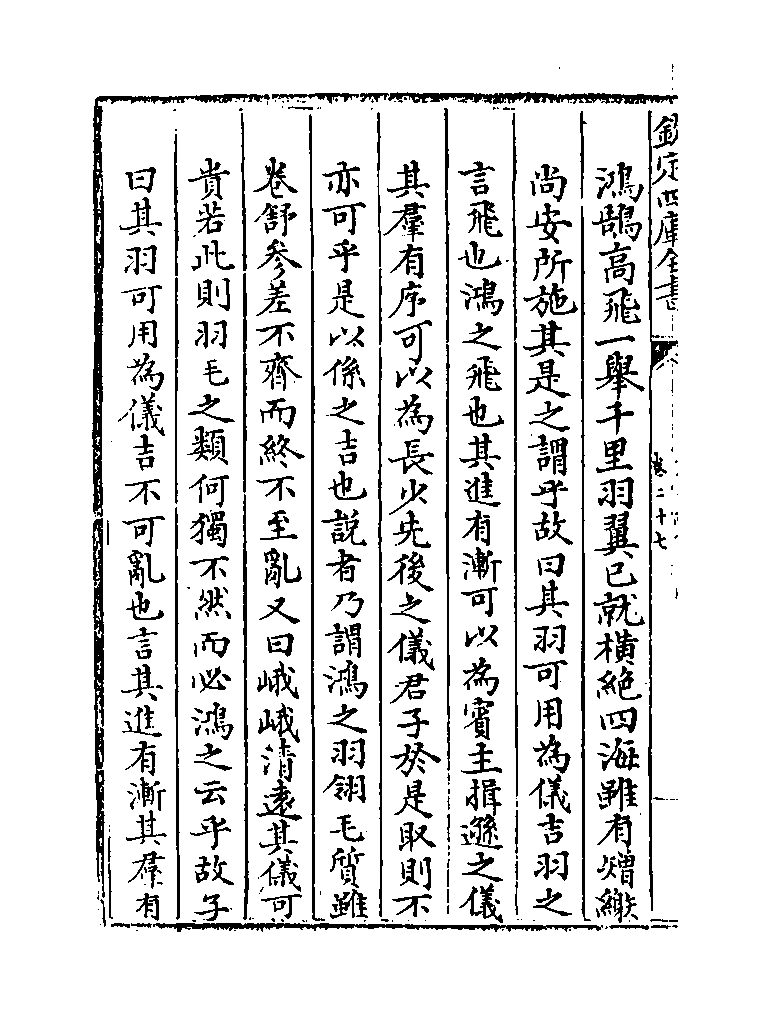 欽定四庫全書
卷二十七
鴻鵠高飛一舉千里羽翼已就橫絶四海雖有矰繳
尚安所施其是之謂乎故曰其羽可用為儀吉羽之
言飛也鴻之飛也其進有漸可以為賓主揖遜之儀
其羣有序可以為長少先後之儀君子於是取則不
亦可乎是以係之吉也説者乃謂鴻之羽翎毛質雖
卷舒參差不齊而終不至亂又曰峨峨清遠其儀可
貴若此則羽毛之類何獨不然而必鴻之云乎故子
曰其羽可用為儀吉不可亂也言其進有漸其羣有